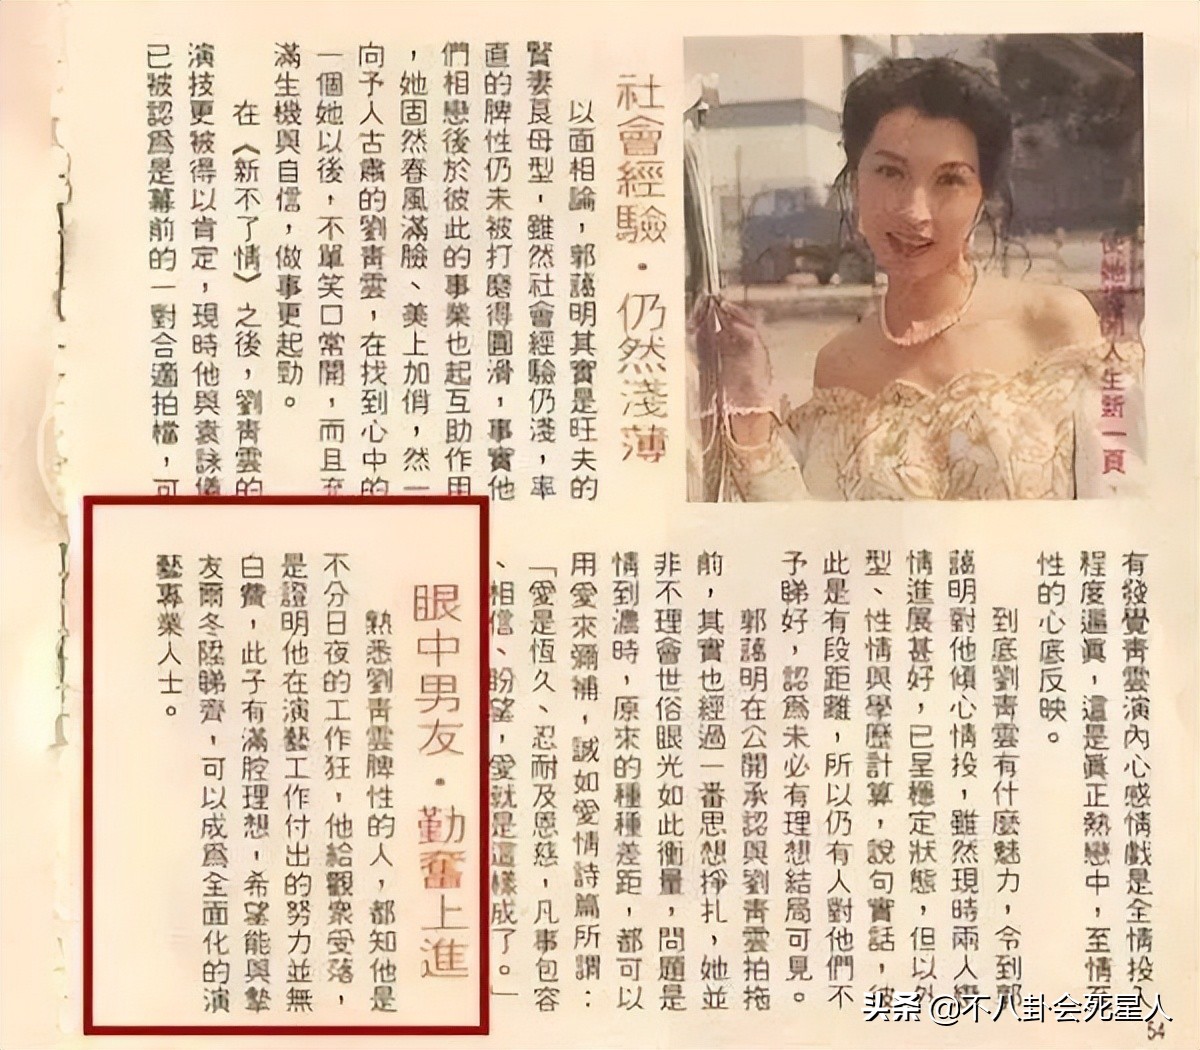 人生新一頁．
社會經驗．仍然淺薄
以面相論，郭藹明其實是旺夫的
賢妻良母型，雖然社會經驗仍淺，率
直的脾性仍未被打磨得圓滑，事實他
們相戀後於彼此的事業也起互助作用
，她固然春風滿臉、美上加俏，然一
向予人古肅的劉青雲，在找到心中的
一個她以後，不單笑口常開，而且充
滿生機與自信，做事更起勁。
在《新不了情》之後，劉青雲的
演技更被得以肯定，現時他與袁詠儀
已被認為是幕前的一對合適拍檔，可
有發覺青雲演內心感情戲是全情投入
程度逼真，這是真正熱戀中，至情至
性的心底反映。
到底劉青雲有什麼魅力，令到郭
藹明對他傾心情投，雖然現時兩人戀
情進展甚好，已呈穩定狀態，但以外
型、性情與學歷計算，說句實話，彼
此是有段距離，所以仍有人對他們不
予睇好，認為未必有理想結局可見。
郭藹明在公開承認與劉青雲拍拖
前，其實也經過一番思想掙扎，她並
非不理會世俗眼光如此衡量，問題是
情到濃時，原來的種種差距，都可以
用愛來彌補，誠如愛情詩篇所謂：
「愛是恆久、忍耐及恩慈，凡事包容
、相信、盼望，愛就是這樣成了。」
眼中男友．勤奮上進
熟悉劉青雲脾性的人，都知他是
不分日夜的工作狂，他給觀衆受落，
是證明他在演藝工作付出的努力並無
白費，此子有滿腔理想，希望能與摯
友爾冬陞睇齊，可以成為全面化的演
藝專業人士。
54
头条 @不八卦会死星人